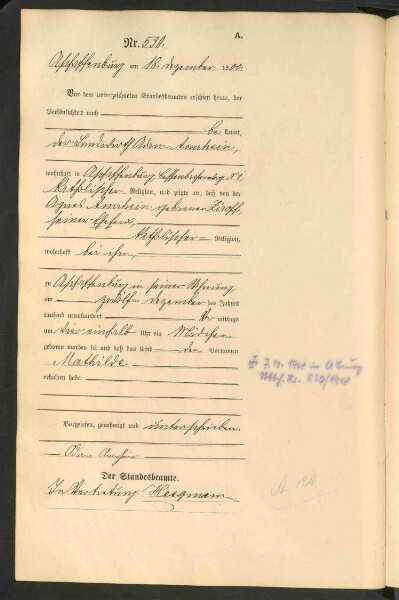 A.
Nr. 530.
Aschaffenburg am 18. Dezember 1900.
Vor dem unterzeichneten Standesbeamten erschien heute, der
Persönlichkeit nach
be kannt,
der Landwirth Adam Amrhein,
wohnhaft in Aschaffenburg
katholischer Religion, und zeigte an, daß von der
Agnes Amrhein geborenen
seiner Ehefrau,
katholischer Religion,
wohnhaft bei ihm,
zu Aschaffenburg in seiner Wohnung
am zwölften Dezember des Jahres
tausend neunhundert Vor mittags
um vier einhalb Uhr ein Mädchen
geboren worden sei und daß das Kind den Vornamen
Mathilde
erhalten habe.
Vorgelesen, genehmigt und unterschrieben.
Adam Amrhein
Der Standesbeamte.
In Vertretung